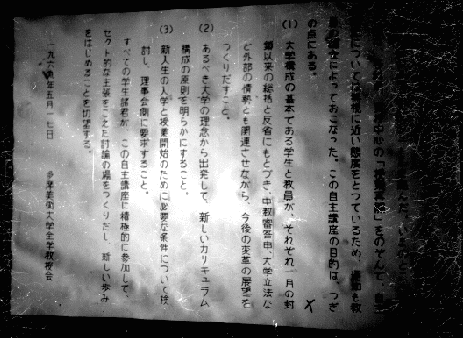 中心の「授業再開」をのぞんで、自主
については黙視に近い態度をとっているため、運動も教
によっておこなった。この自主講座の目的は、つぎ
の点にある。
(1) 大学構成の基本である学生と教員が、それぞれ一月の封
鎖以来の総括と反省にもとづき、中教審答申、大学立法な
ど外部の情勢とも関連させながら、今後の変革の展望を
つくりだすこと。
(2) あるべき大学の理念から出発して、新しいカリキュラム
構成の原則を明らかにすること。
(3) 新入生の入学と授業開始のために必要な条件について検
討し、理事会側に要求すること。
すべての学生諸君が、この自主講座に積極的に参加して、
セクト的な主張をこえた討論の場をつくりだし、新しい歩み
をはじめることを切望する。
一九六九年五月一七日 多摩美術大学全学教授会